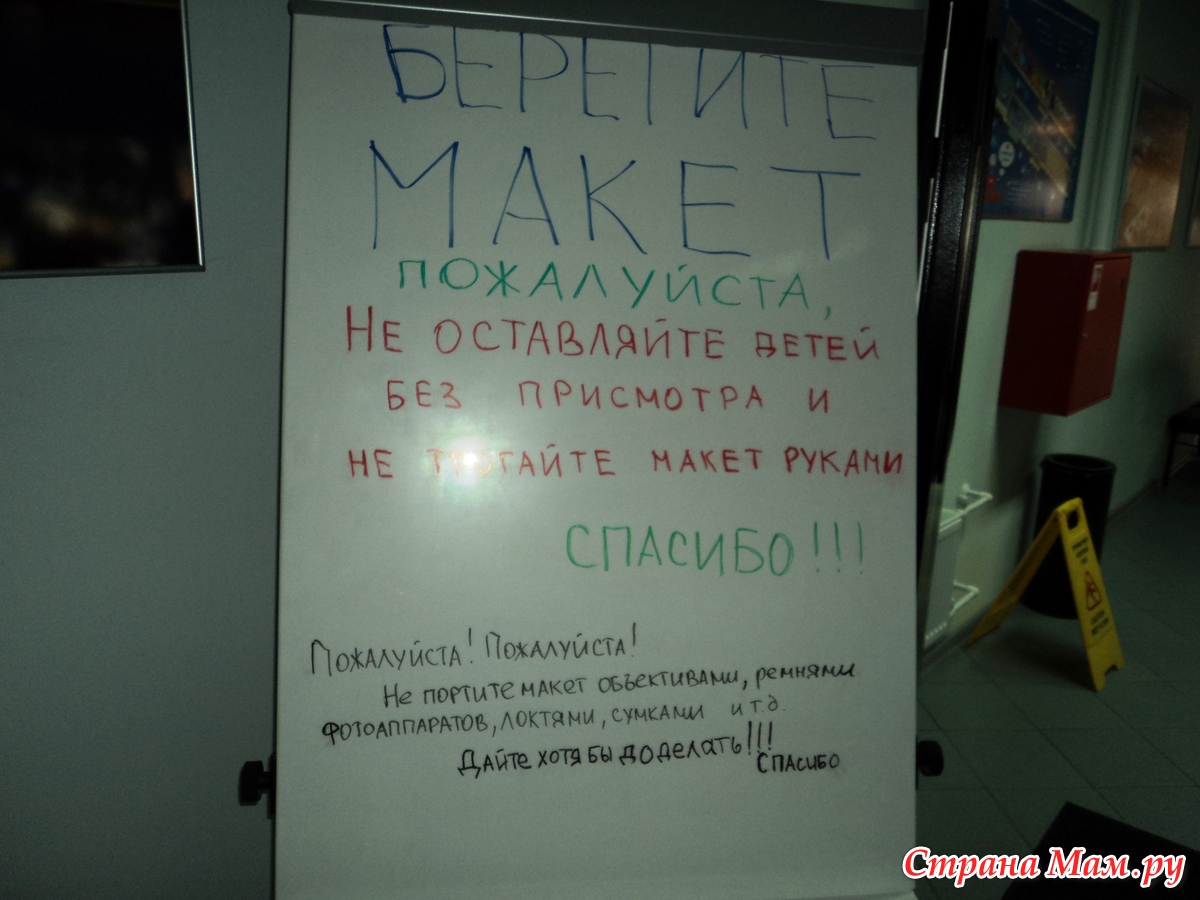 БЕРЕГИТЕ
МАКЕТ
ПОЖАЛУЙСТА,
НЕ ОСТАВЛЯЙТЕ ДЕТЕЙ
БЕЗ ПРИСМОТРА И
НЕ ТРОГАЙТЕ МАКЕТ РУКАМИ
СПАСИБО!!!
ПОЖАЛУЙСТА! ПОЖАЛУЙСТА!
НЕ ПОРТИТЕ МАКЕТ ОБЪЕКТИВАМИ, РЕМНЯМИ
ФОТОАППАРАТОВ, ЛОКТЯМИ, СУМКАМИ И Т.Д.
ДАЙТЕ ХОТЯ БЫ ДОДЕЛАТЬ!!!
СПАСИБО
Страна Мам.ру